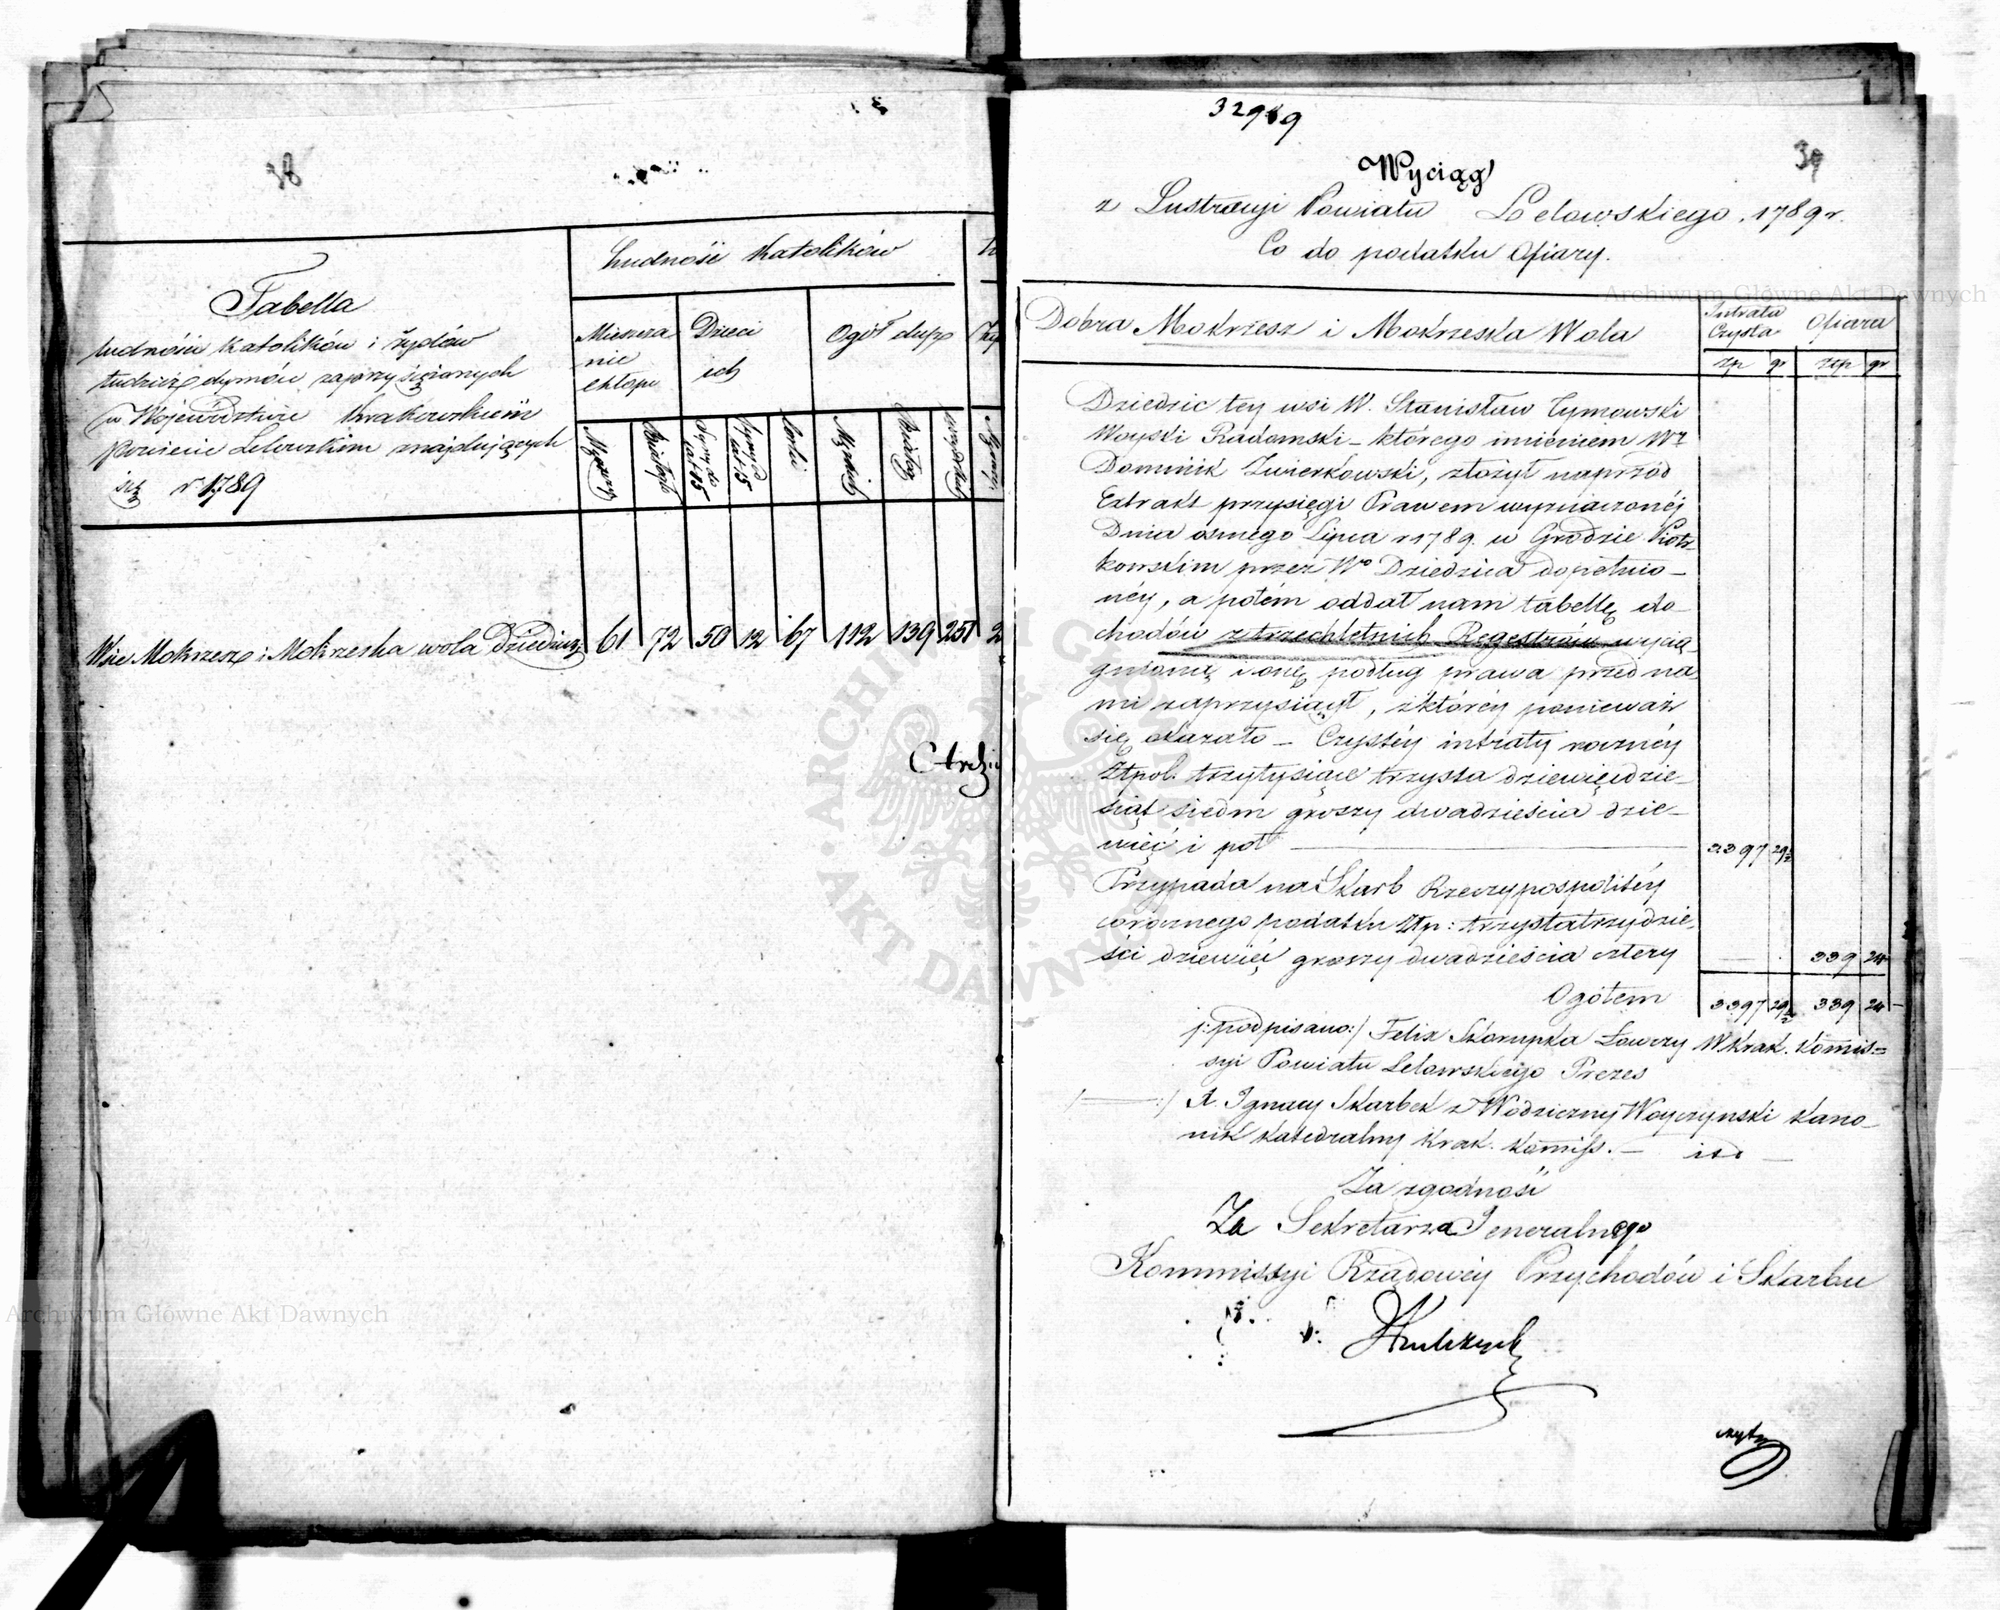 38
Tabella
ludności Katolików i Żydów
tudzież dymów zaprzysiężonych
w Województwie Krakowskiém
powiecie Lelowskim znajdujących
się r 1789
Ludność Katolików
Mieszcza
nie
chłopi
Dzieci
ich
Ogół dusz
Wsie Mokrzesz i Mokrzeska wola Dziedzicz
61 72 50 12 67 112 139 251 2
32989
39
Wyciąg
z Lustracyi Powiatu Lelowskiego 1789 r.
Co do podatku Ofiary.
Dobra Mokrzesz i Mokrzeska Wola
Intrata
Czysta
Ofiara
Złp gr Złp gr
Dziedzic tey wsi W. Stanisław Tymowski
Woyski Radomski – którego imieniem Wż
Dominik Zwierkowski, złożył naprzód
Extrakt przysięgi Prawem wyznaczonéj
Dnia osmego Lipca r 1789. w Grodzie Piotr
kowskim przez Wo Dziedzica dopełnio–
néy, a potém oddał nam tabellę do–
chodów z trzechletnich Regestrów wycią–
gnioną i onę podług prawa przed na
mi zaprzysiągł, z któréy ponieważ
się okazało – Czystéy intraty roczney
Złpol. trzytysiące trzysta dziewięćdzie–
siąt siedm groszy dwadzieścia dzie–
więć i pół
3397 29½
Przypada na Skarb Rzeczypospolitéy
corocznego podatku Złp: trzysta trzydzie–
ści dziewięć groszy dwadzieścia cztery
339 24
Ogółem
3397 29½ 339 24
/:podpisano:/ Felix Skorupka Łowczy W Krak. Komis=
syi Powiatu Lelowskiego Prezes
:/ X. Ignacy Skarbek z Wodziczny Woyczynski Kano–
nik Katedralny Krak. Komiss.
Za zgodność
Za Sekretarza Jeneralnego
Kommissyi Rządowéy Przychodów i Skarbu
ARCHIWUM GŁÓWNE AKT DAWNYCH
Archiwum Główne Akt Dawnych
Archiwum Główne Akt Dawnych